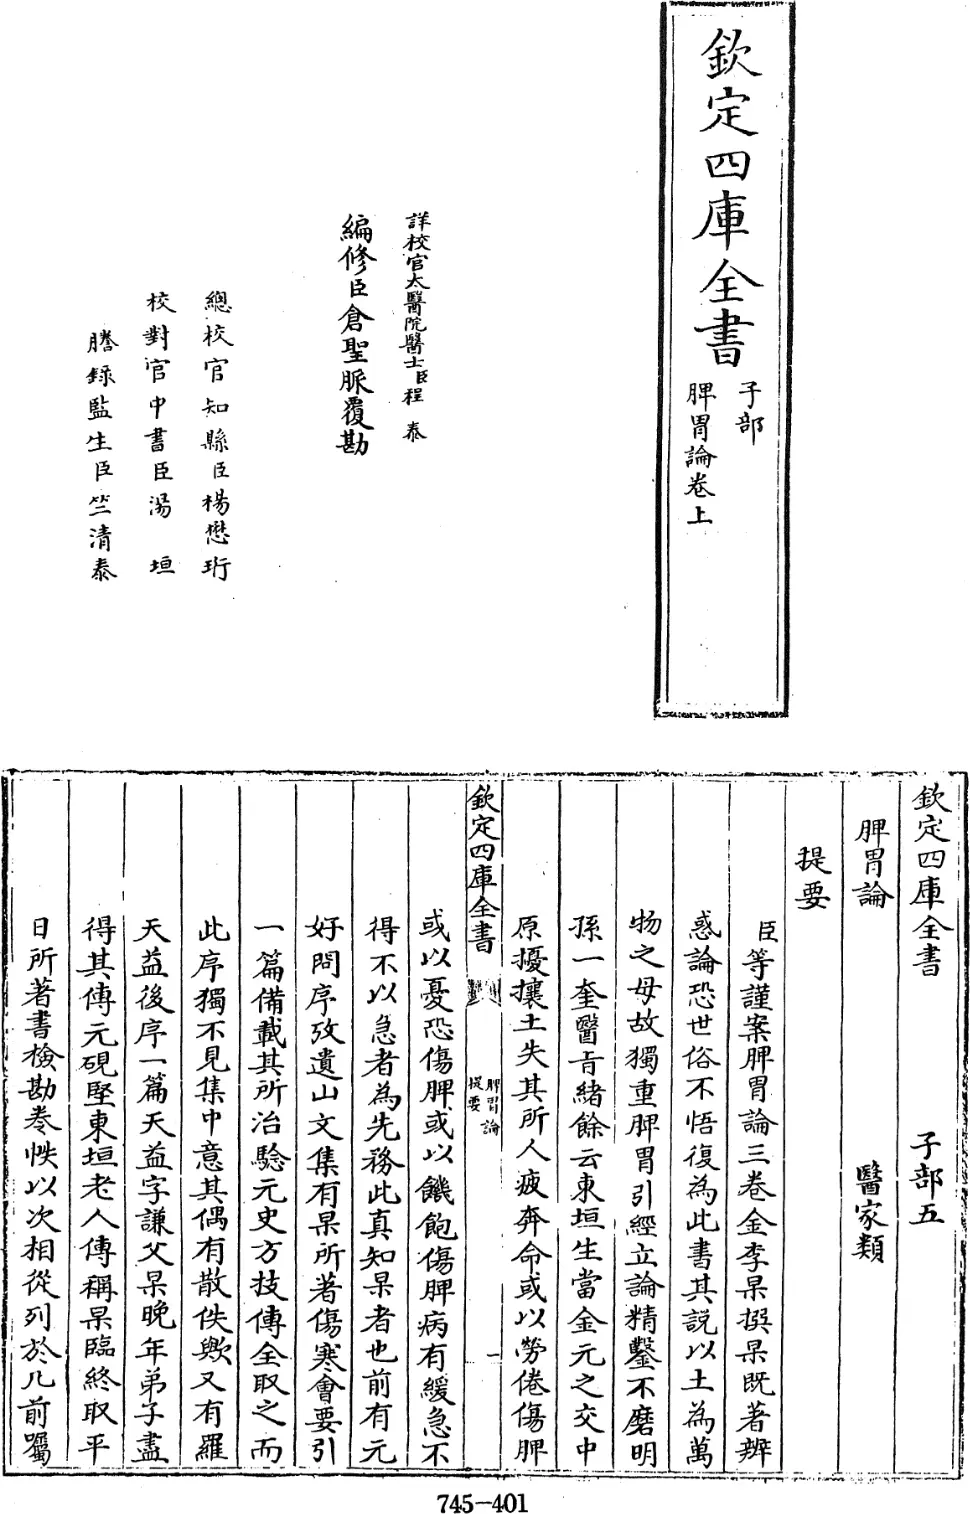 欽定四庫全書
子部
脾胃論卷上
詳校官太醫院醫士臣程泰
編修臣倉聖脈覆勘
總校官知縣臣楊懋珩
校對官中書臣湯垣
謄錄監生臣竺清泰
欽定四庫全書 子部五
脾胃論 醫家類
提要
臣等謹案脾胃論三卷金李杲撰杲既著辨
惑論恐世俗不悟復為此書其說以土為萬
物之母故獨重脾胃引經立論精鑿不磨明
孫一奎醫旨緒餘云東垣生當金元之交中
原擾攘土失其所人疲奔命或以勞倦傷脾
欽定四庫全書
脾胃論
提要
一
或以憂恐傷脾或以饑飽傷脾病有緩急不
得不以急者為先務此真知杲者也前有元
好問序攷遺山文集有杲所著傷寒會要引
一篇備載其所治驗元史方技傳全取之而
此序獨不見集中意其偶有散佚歟又有羅
天益後序一篇天益字謙父杲晚年弟子盡
得其傳元硯堅東垣老人傳稱杲臨終取平
日所著書檢勘卷帙以次相從列於几前囑
745-401